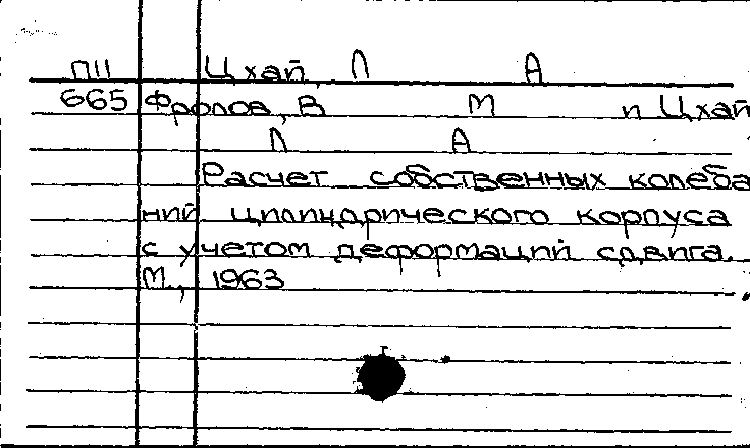 П11 Цхай, Л А
665 Фролов, В М и Цхай
Л А
Расчет собственных колеба
ний цилиндрического корпуса
с учетом деформаций сдвига.
М., 1963